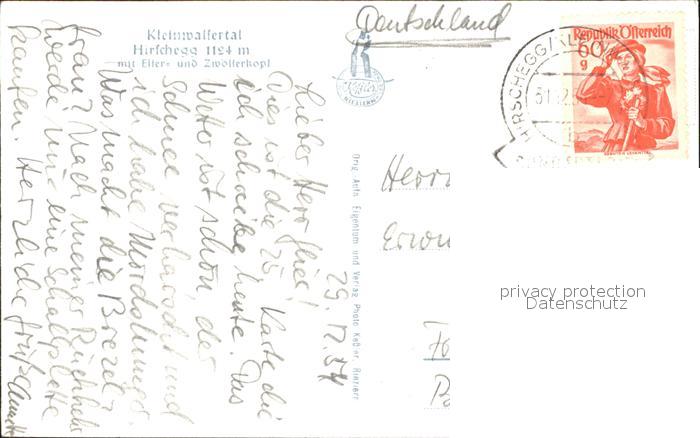 Kleinwalsertal
Hirschegg 1124 m
mit Elfer- und Zwölferkopf
Deutschland
Republik Österreich
60
g
HIRSCHEGG/KL
Orig.-Aufn. Eigentum und Verlag Photo Keßler, Riezlern
29.12.54
Lieber Herr
Dies ist die 25. Karte die
ich schreibe heute. Das
Wetter ist schön der
Schnee verharscht und
ich habe Mordshunger.
Was macht die Brezel-
frau? Nach meiner Rückkehr
werde mir eine Schallplatte
kaufen. Herzliche Grüße
Herrn
Erwi
privacy protection
Datenschutz